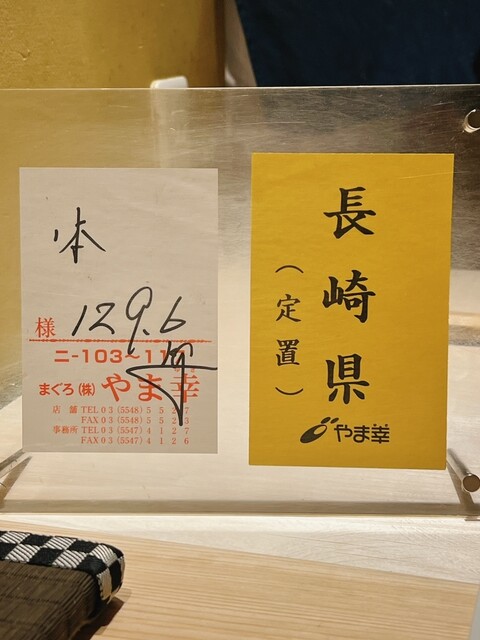 本
様 129.6
ニ-103~11
まぐろ(株) やま幸
店舗 TEL 03 (5548) 5527
FAX 03 (5548) 5523
事務所 TEL 03 (5547) 4127
FAX 03 (5547) 4126
長崎県
(定置)
やま幸